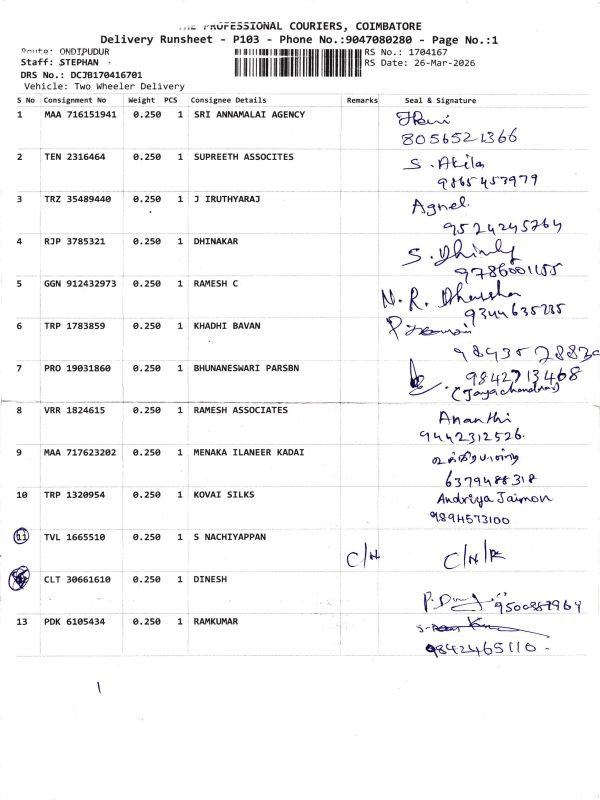 THE PROFESSIONAL COURIERS, COIMBATORE
Delivery Runsheet - P103 - Phone No.:9047080280 - Page No.:1
Route: ONDIPUDUR
RS No.: 1704167
Staff: STEPHAN
RS Date: 26-Mar-2026
DRS No.: DCJB170416701
Vehicle: Two Wheeler Delivery
S No Consignment No Weight PCS Consignee Details Remarks Seal & Signature
1 MAA 716151941 0.250 1 SRI ANNAMALAI AGENCY
8056521366
2 TEN 2316464 0.250 1 SUPREETH ASSOCITES S. Akila
9865453979
3 TRZ 35489440 0.250 1 J IRUTHYARAJ Agnel
9524245764
4 RJP 3785321 0.250 1 DHINAKAR
9786001155
5 GGN 912432973 0.250 1 RAMESH C N.R. Dharshan
9344635235
6 TRP 1783859 0.250 1 KHADHI BAVAN
7 PRO 19031860 0.250 1 BHUNANESWARI PARSBN 9842713468
(Jayachandran)
8 VRR 1824615 0.250 1 RAMESH ASSOCIATES Ananthi
9442312526.
9 MAA 717623202 0.250 1 MENAKA ILANEER KADAI
6379488318
10 TRP 1320954 0.250 1 KOVAI SILKS Andriya Jaimon
9894573100
11 TVL 1665510 0.250 1 S NACHIYAPPAN
C/N C/N/R
CLT 30661610 0.250 1 DINESH
9500887964
13 PDK 6105434 0.250 1 RAMKUMAR
9842465110-
1